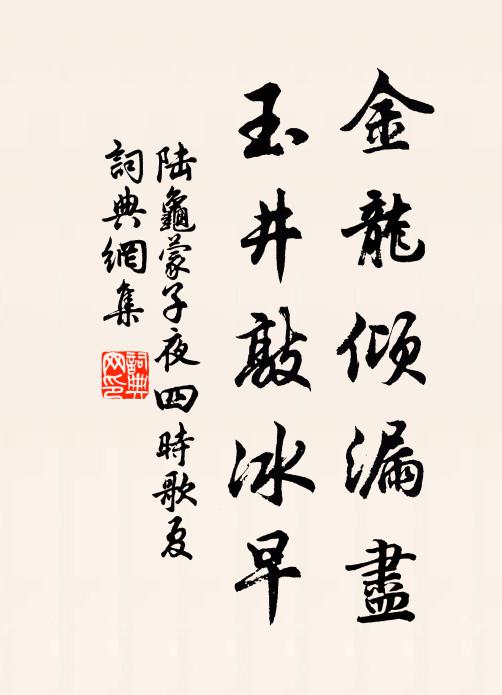 金龍傾漏盡
玉井敲冰早
陸龜蒙子夜四時歌夏
詞典網集
詞典網印